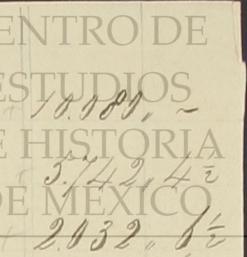 ENTRO DE
ESTUDIOS
10.080,, ~
E HISTORIA
5.742,, 4 ½
DE MÉXICO
2.032,, 6 ½